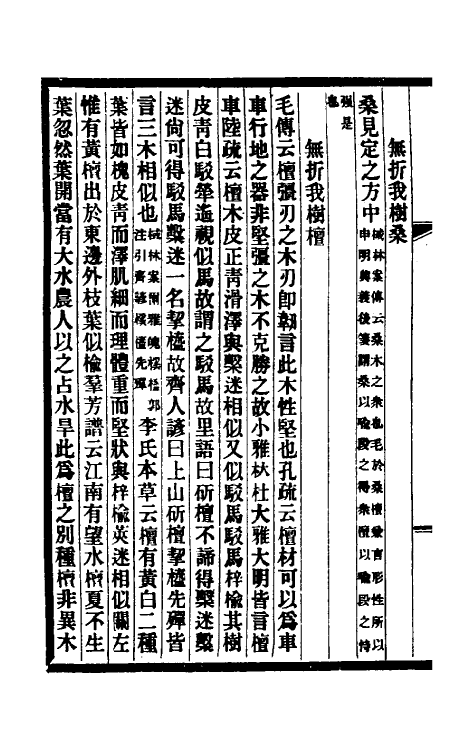 無折我樹桑
桑見定之方中
棫林案傳云桑木之衆也毛於桑檀兼言形性所以
申明興義後箋謂桑以喻段之得衆檀以喻段之恃
强是
也
無折我樹檀
毛傳云檀彊刃之木刃卽韌言此木性堅也孔疏云檀材可以爲車
車行地之器非堅彊之木不克勝之故小雅杕杜大雅大明皆言檀
車陸疏云檀木皮正靑滑澤與檕迷相似又似駁馬駁馬梓楡其樹
皮靑白駁犖遙視似馬故謂之駁馬故里語曰斫檀不諦得檕迷檕
迷尙可得駁馬檕迷一名挈橀故齊人諺曰上山斫檀挈橀先殫皆
言三木相似也
棫林案爾雅魄榽橀郭
注引齊諺榽橀先殫
李氏本草云檀有黃白二種
葉皆如槐皮靑而澤肌細而理體重而堅狀與梓楡莢迷相似關左
惟有黃檀出於東邊外枝葉似楡羣芳譜云江南有望水檀夏不生
葉忽然葉開當有大水農人以之占水旱此爲檀之別種檀非異木